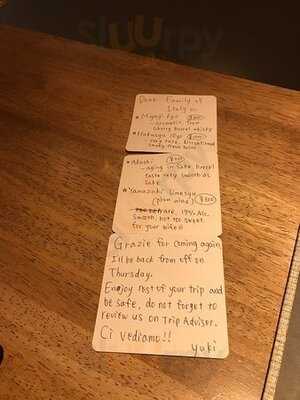 sluurpy
Dear Family of
Italy
Miyagi kyo
aromatic from
sherry barrel whisky
very rare, discontinued
Smoky
Akashi
aging in Sake barrel
taste very smooth as
sake
Yamazaki Umesyu
(plum wine)
rare, 19% Alc.
Smooth, not too sweet.
for your wife!!
Grazie for coming again
I'll be back from off on
Thursday.
Enjoy rest of your trip and
be safe, do not forget to
review us on Trip Adviser.
Ci vediamo!!
yuki